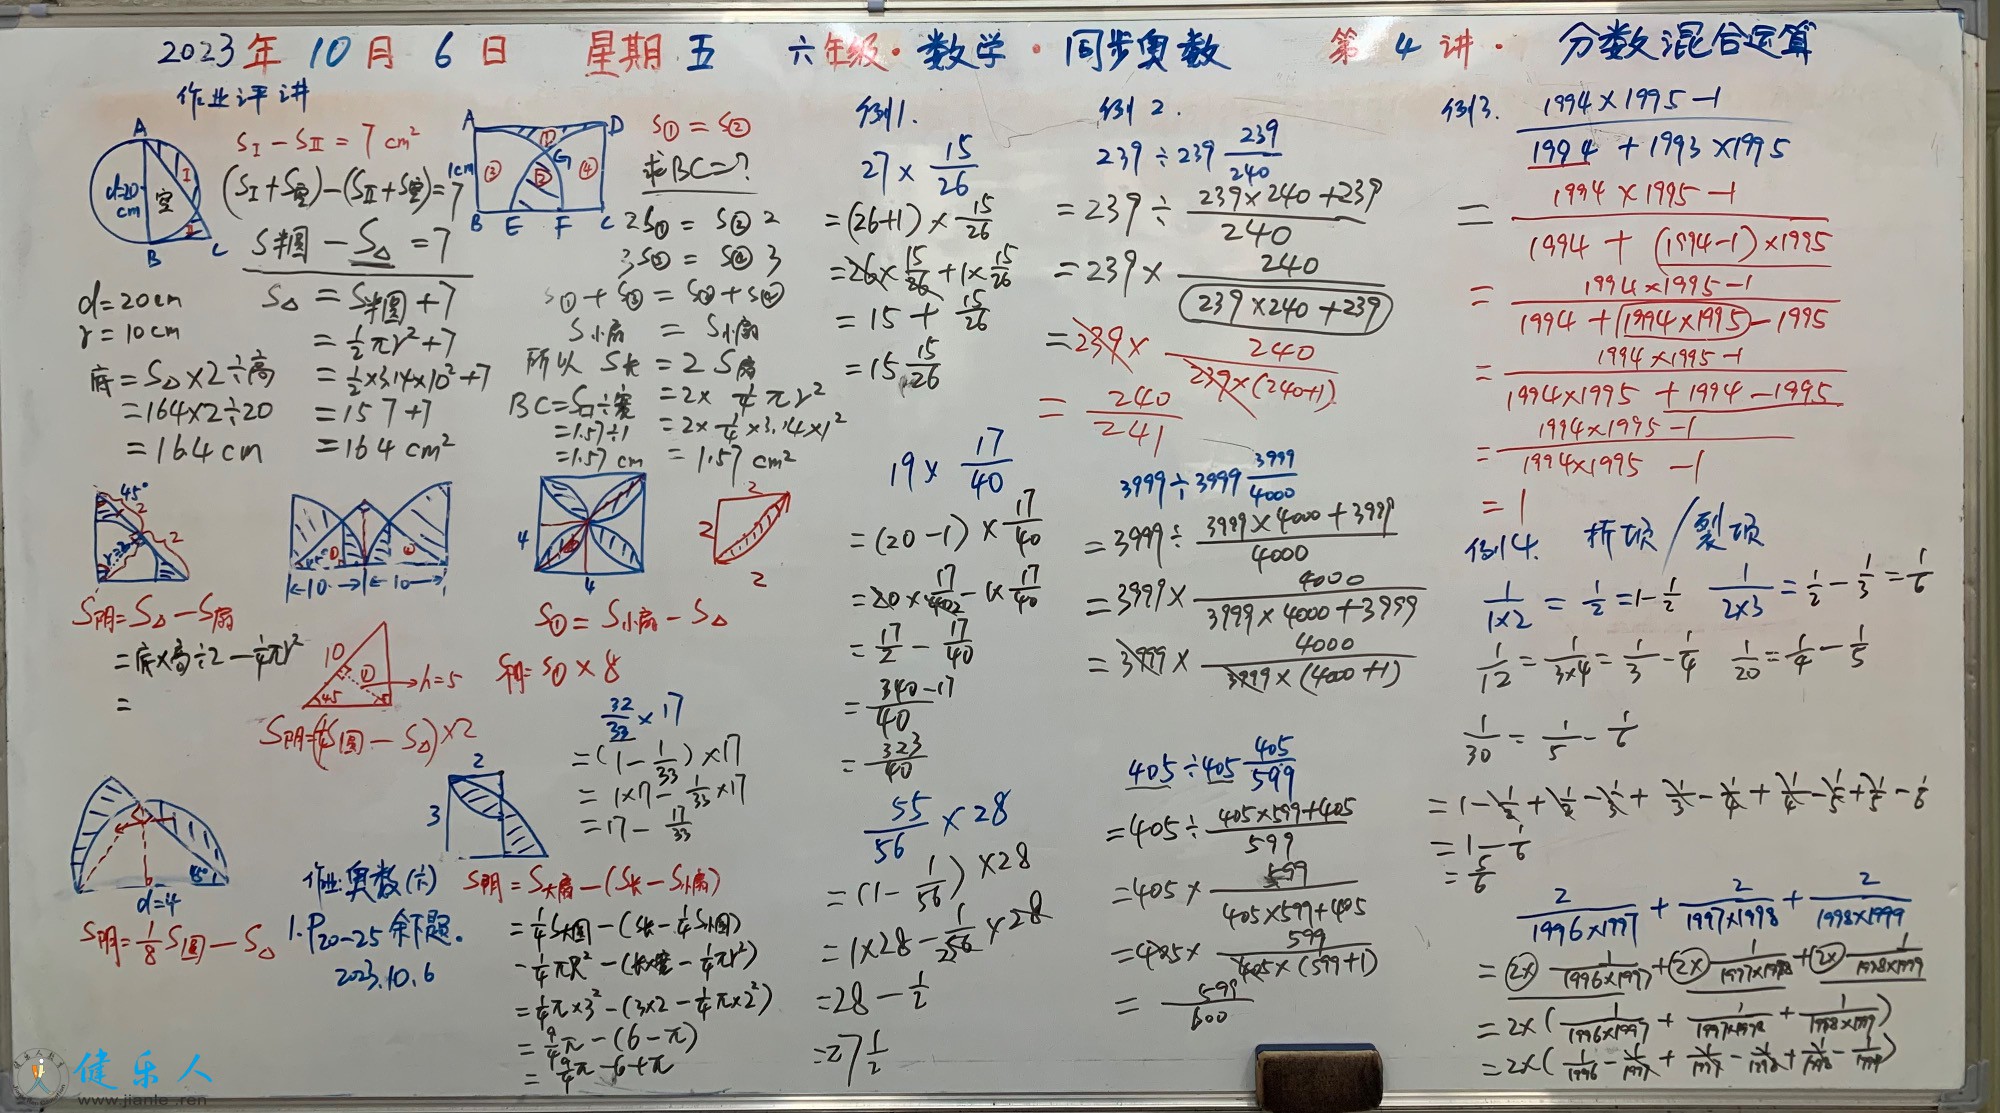 2023年10月6日 星期五 六年级·数学·同步奥数 第4讲· 分数混合运算
作业评讲
A
d=20
cm
空
I
II
B
C
S_I - S_II = 7 cm²
(S_I + S空) - (S_II + S空) = 7
S半圆 - S△ = 7
d=20cm
r=10cm
S△ = S半圆 + 7
= 1/2 πr² + 7
= 1/2 × 3.14 × 10² + 7
= 157 + 7
= 164 cm²
底 = S△ × 2 ÷ 高
= 164 × 2 ÷ 20
= 16.4 cm
A
D
1cm
①
②
③
④
G
B E F C
S① = S②
求BC=?
2S① = S② 2
3S③ = S④ 3
S① + S③ = S② + S④
S小扇 = S小扇
所以 S长 = 2 S扇
= 2 × 1/4 πr²
= 2 × 1/4 × 3.14 × 1²
= 1.57 cm²
BC = S口 ÷ 宽
= 1.57 ÷ 1
= 1.57 cm
45°
2
2
r=2
S阴 = S△ - S扇
= 底×高÷2 - 1/4 πr²
=
45°
①
|←10→|←10→|
10
①
45
→h=5
S阴=(1/4 S圆 - S△)×2
4
4
2
2
2
S① = S小扇 - S△
S阴 = S① × 8
32/33 × 17
= (1 - 1/33) × 17
= 1×17 - 1/33 × 17
= 17 - 17/33
45°
d=4
S阴 = 1/8 S圆 - S△
作业:奥数(六)
1. P20-25 余下题。
2023.10.6
2
3
S阴 = S大扇 - (S长 - S小扇)
= 1/4 S大圆 - (S长 - 1/4 S小圆)
= 1/4 πR² - (长×宽 - 1/4 πr²)
= 1/4 π×3² - (3×2 - 1/4 π×2²)
= 9/4 π - (6 - π)
= 9/4 π - 6 + π
例1.
27 × 15/26
= (26+1) × 15/26
= 26 × 15/26 + 1 × 15/26
= 15 + 15/26
= 15 15/26
19 × 17/40
= (20 - 1) × 17/40
= 20 × 17/40 2 - 1 × 17/40
= 17/2 - 17/40
= 340-17/40
= 323/40
55/56 × 28
= (1 - 1/56) × 28
= 1×28 - 1/56 2 × 28
= 28 - 1/2
= 27 1/2
例2.
239 ÷ 239 239/240
= 239 ÷ 239×240+239/240
= 239 × 240/239×240+239
= 239 × 240/239×(240+1)
= 240/241
3999 ÷ 3999 3999/4000
= 3999 ÷ 3999×4000+3999/4000
= 3999 × 4000/3999×4000+3999
= 3999 × 4000/3999×(4000+1)
405 ÷ 405 405/599
= 405 ÷ 405×599+405/599
= 405 × 599/405×599+405
= 405 × 599/405×(599+1)
= 599/600
例3. 1994×1995-1/1994+1993×1995
= 1994×1995-1/1994+(1994-1)×1995
= 1994×1995-1/1994+(1994×1995)-1995
= 1994×1995-1/1994×1995+1994-1995
= 1994×1995-1/1994×1995-1
= 1
例4. 拆项/裂项
1/1×2 = 1/2 = 1 - 1/2 1/2×3 = 1/2 - 1/3 = 1/6
1/12 = 1/3×4 = 1/3 - 1/4 1/20 = 1/4 - 1/5
1/30 = 1/5 - 1/6
= 1 - 1/2 + 1/2 - 1/3 + 1/3 - 1/4 + 1/4 - 1/5 + 1/5 - 1/6
= 1 - 1/6
= 5/6
2/1996×1997 + 2/1997×1998 + 2/1998×1999
= 2× 1/1996×1997 + 2× 1/1997×1998 + 2× 1/1998×1999
= 2×(1/1996×1997 + 1/1997×1998 + 1/1998×1999)
= 2×(1/1996 - 1/1997 + 1/1997 - 1/1998 + 1/1998 - 1/1999)
健乐人
www.jianle.ren